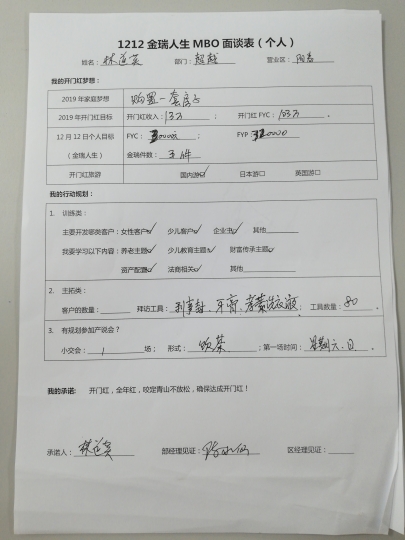 1212 金瑞人生 MBO 面谈表（个人）
姓名： 部门：超越 营业区：阳春
我的开门红梦想：
2019 年家庭梦想 购置一套房子
2019 年开门红目标 开门红收入： ； 开门红 FYC： 。
12 月 12 日个人目标 FYC： FYP：
（金瑞人生） 金瑞件数：3件
开门红旅游 国内游□ 日本游□ 英国游□
我的行动规划：
1. 训练类：
主要开发哪类客户：女性客户 少儿客户 企业主 其他
我要学习以下内容：养老主题 少儿教育主题 财富传承主题
资产配置 法商相关 其他
2. 主拓类：
客户的数量： 拜访工具： 牙膏、 洗衣液 ；工具数量：80 。
3. 有规划参加产说会？
小交会：1 场； 形式：颂茶 ；第一场时间：星期六、日 。
我的承诺： 开门红，全年红，咬定青山不放松，确保达成开门红！
承诺人： 部经理见证： 区经理见证：